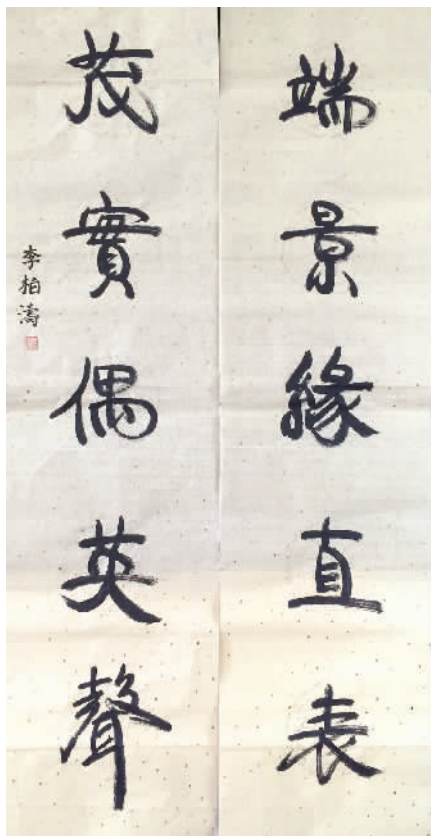 端景緣直表
茂實偶英聲
李柏濤